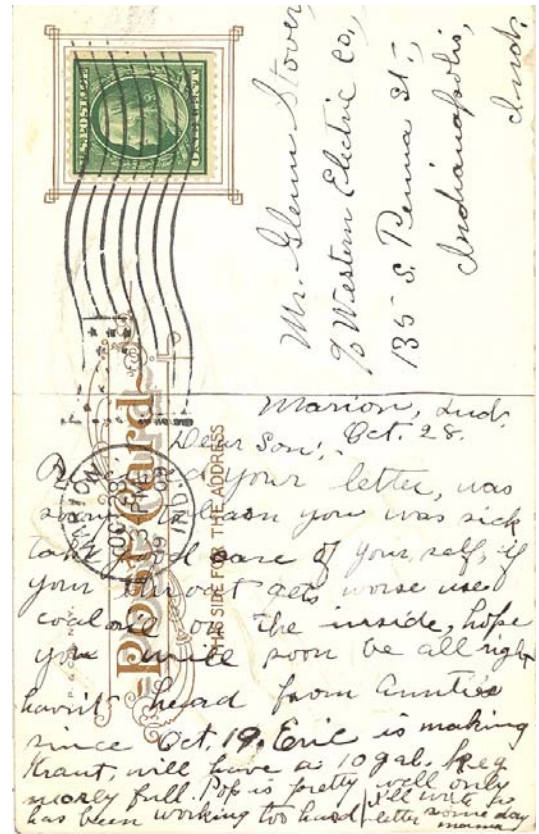 U.S. POSTAGE
ONE CENT
Mr. Glenn Stover,
℅ Western Electric Co,
135 S. Penna St.,
Indianapolis,
Ind.
Post Card
THIS SIDE FOR THE ADDRESS
MARION
OCT 28
PM
IND
Marion, Ind.
Oct. 28.
Dear Son;
Received your letter, was
sorry to learn you was sick
take good care of your self, if
your throat gets worse use
coal oil on the inside, hope
you will soon be all right
havint heard from Auntie
since Oct. 19. Eric is making
Kraut, will have a 10 gal. Keg
nearly full. Pop is pretty well only
has been working too hard
I'll write a
letter some day
mama